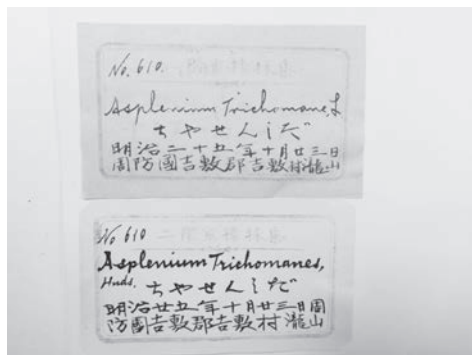 No. 610.
Asplenium Trichomane, L
ちやせんしだ
明治二十五年十月廿三日
周防國吉敷郡吉敷村瀧山
No 610
Asplenium Trichomanes,
Huds. ちやせんしだ
明治廿五年十月廿三日周
防國吉敷郡吉敷村瀧山